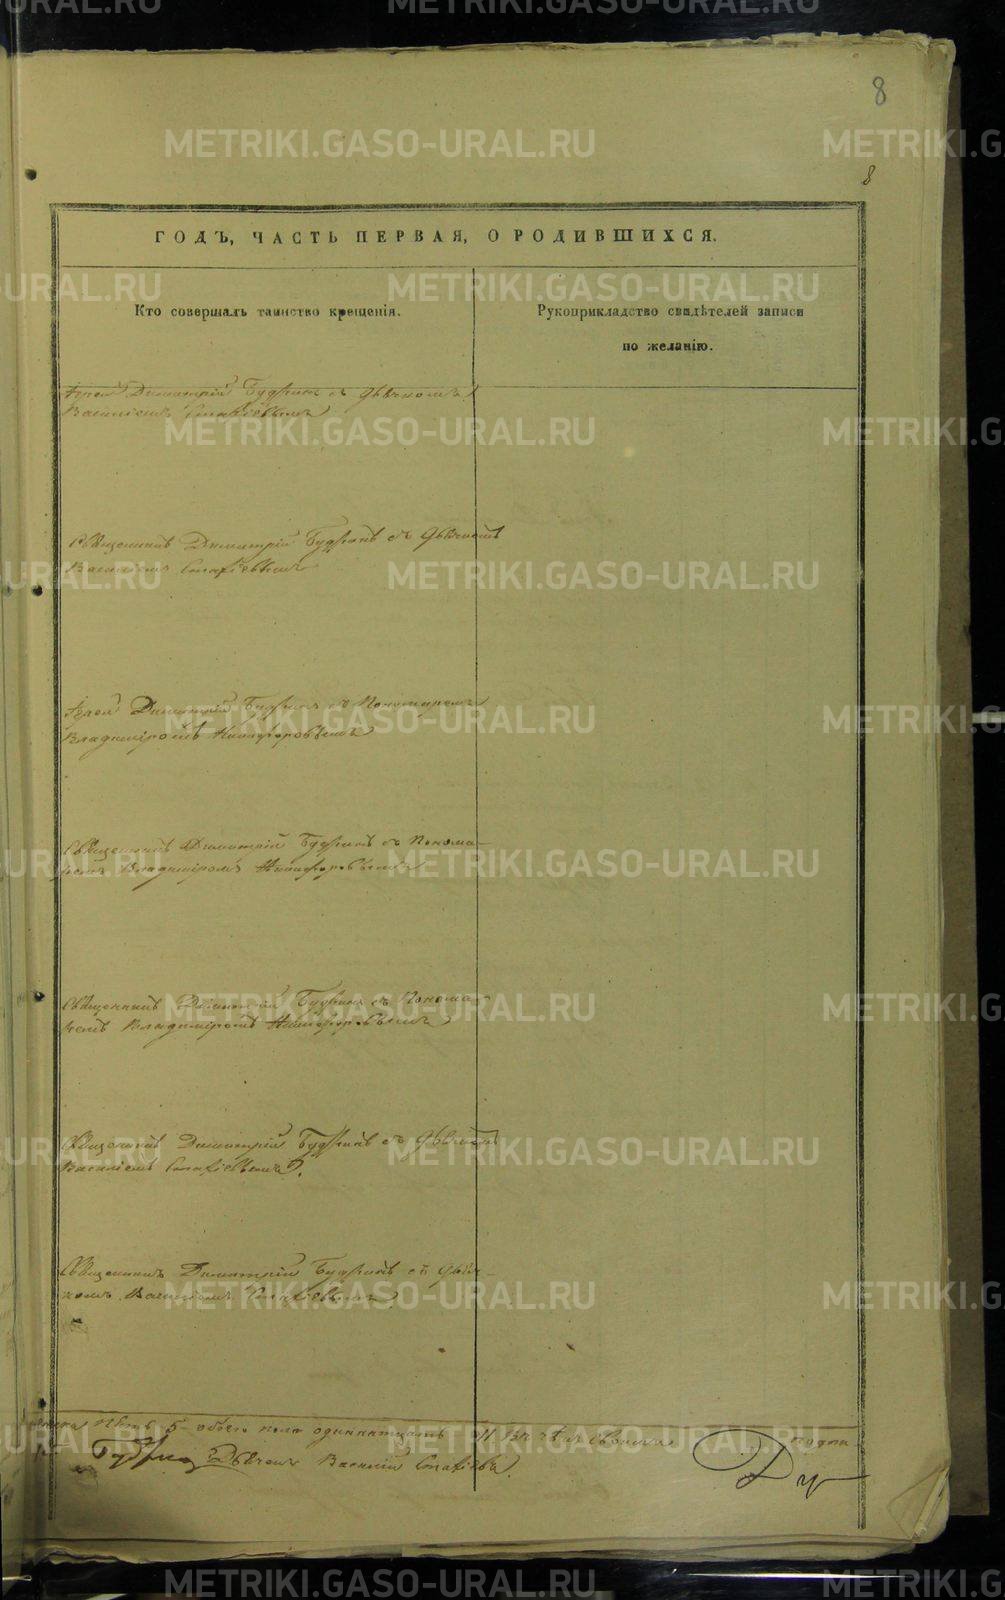 METRIKI.GASO-URAL.RU
8
8
ГОДЪ, ЧАСТЬ ПЕРВАЯ, О РОДИВШИХСЯ.
Кто совершалъ таинство крещенія.
Рукоприкладство свидѣтелей записи
по желанію.
Іерей Димитрій Будринъ съ дьячкомъ
Василіемъ
Священникъ Димитрій Будринъ съ дьячкомъ
Василіемъ
Іерей Димитрій Будринъ съ Пономаремъ
Владиміромъ Никифоровымъ
Священникъ Димитрій Будринъ съ Понома-
ремъ Владиміромъ Никифоровымъ
Священникъ Димитрій Будринъ съ Понома-
ремъ Владиміромъ Никифоровымъ
Священникъ Димитрій Будринъ съ дьячкомъ
Василіемъ
Священникъ Димитрій Будринъ съ дьяч-
комъ Василіемъ
пять 5 обоего пола одиннатцать 11
Будринъ Дьячекъ Василій